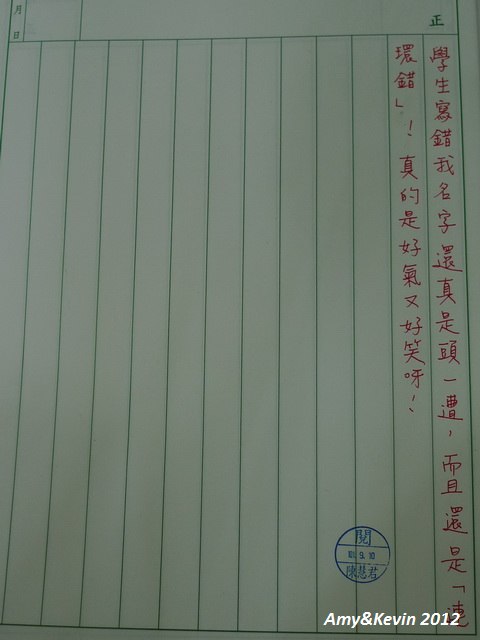 月
日
正
學生寫錯我名字還真是頭一遭，而且還是「連
環錯」！真的是好氣又好笑呀！
閱
101. 9. 10
陳慧君
Amy&Kevin 2012